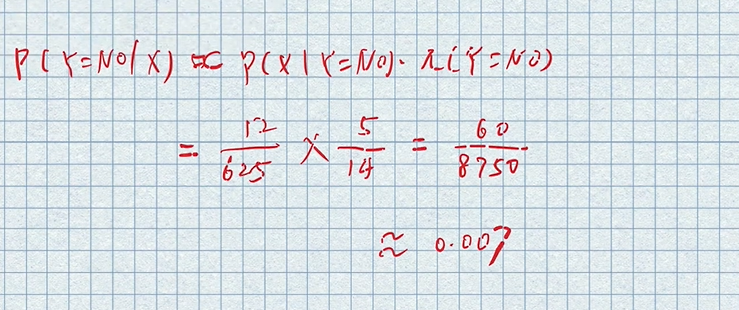 P(Y=NO|X) ∝ P(X|Y=NO)·π(Y=NO)
= 12/625 × 5/14 = 60/8750
≈ 0.007